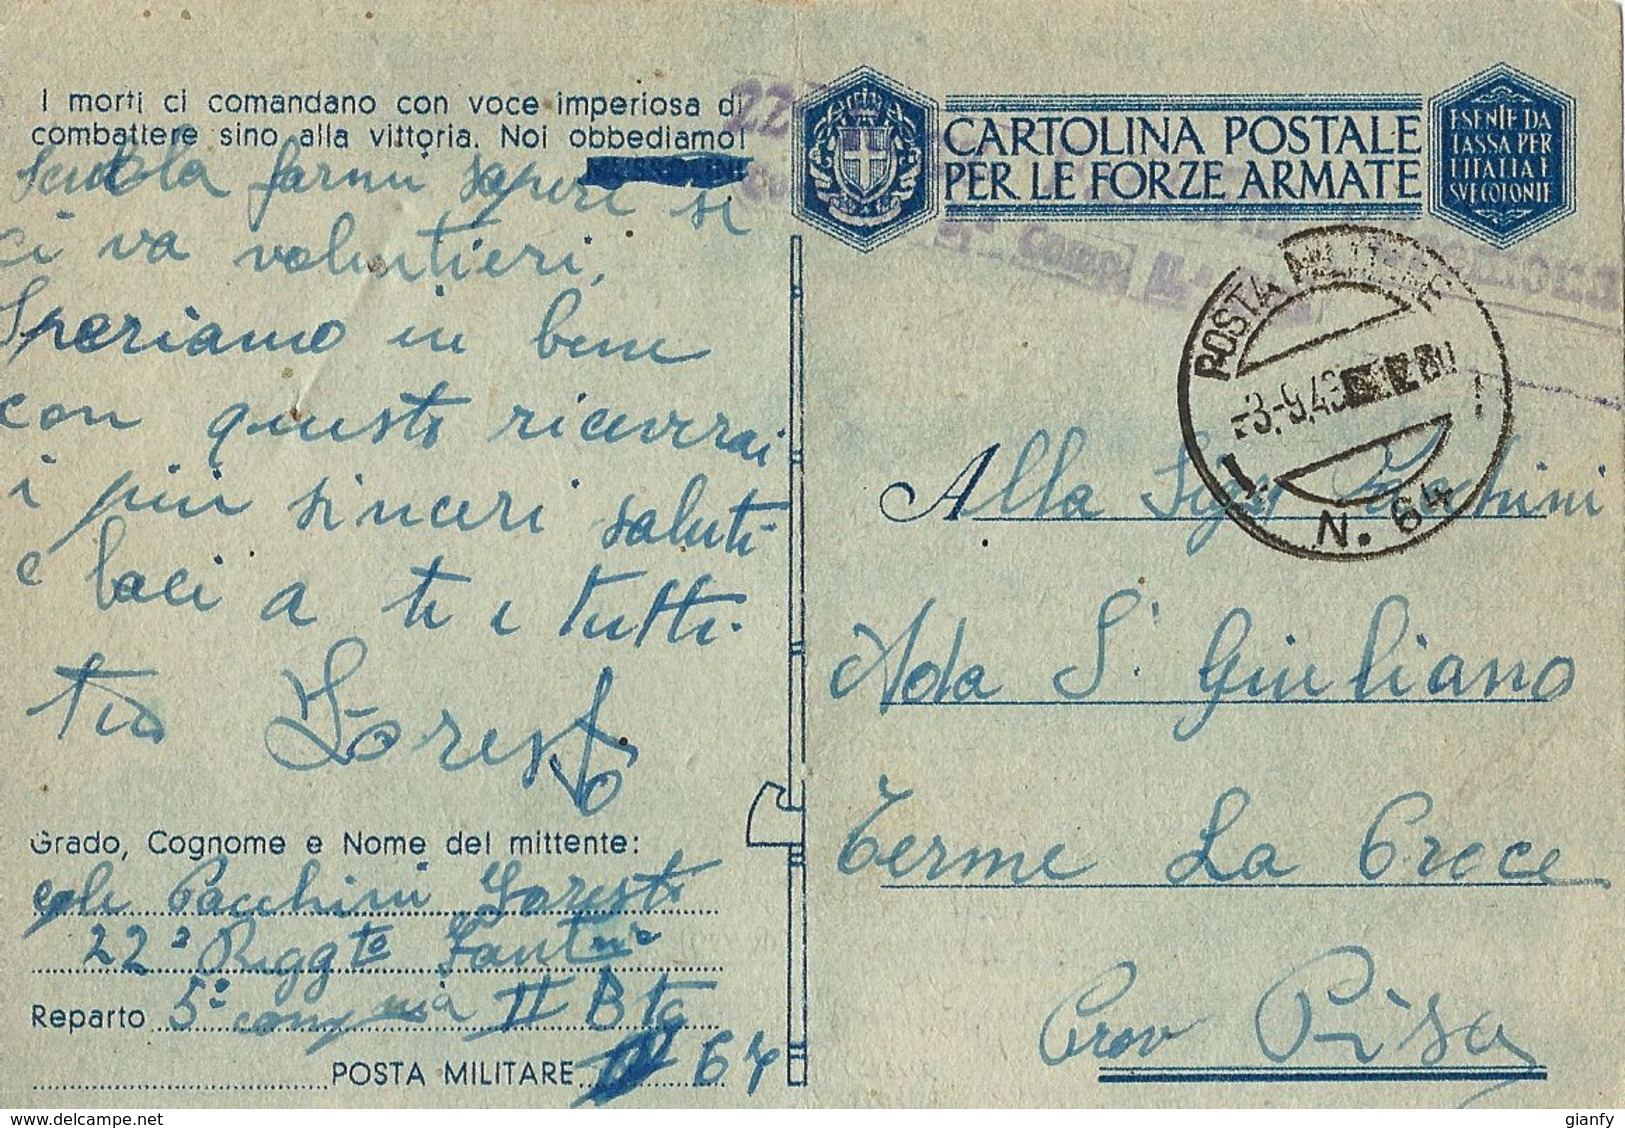 I morti ci comandano con voce imperiosa di
combattere sino alla vittoria. Noi obbediamo!
farmi sapere si
ci va volentieri,
Speriamo in bene
con questo riceverai
i più sinceri saluti
e baci a te e tutti.
tuo Foresto
Grado, Cognome e Nome del mittente:
Pacchini Foresto
22° Reggto
Reparto 5° II Btg
POSTA MILITARE 64
CARTOLINA POSTALE
PER LE FORZE ARMATE
ESENTE DA
TASSA PER
L'ITALIA E
SVE COLONIE
POSTA MILITARE
-3.-9.43
N. 64
Alla Sigra Pacchini
Ada S. Giuliano
Terme La Croce
Prov Pisa
gianfy